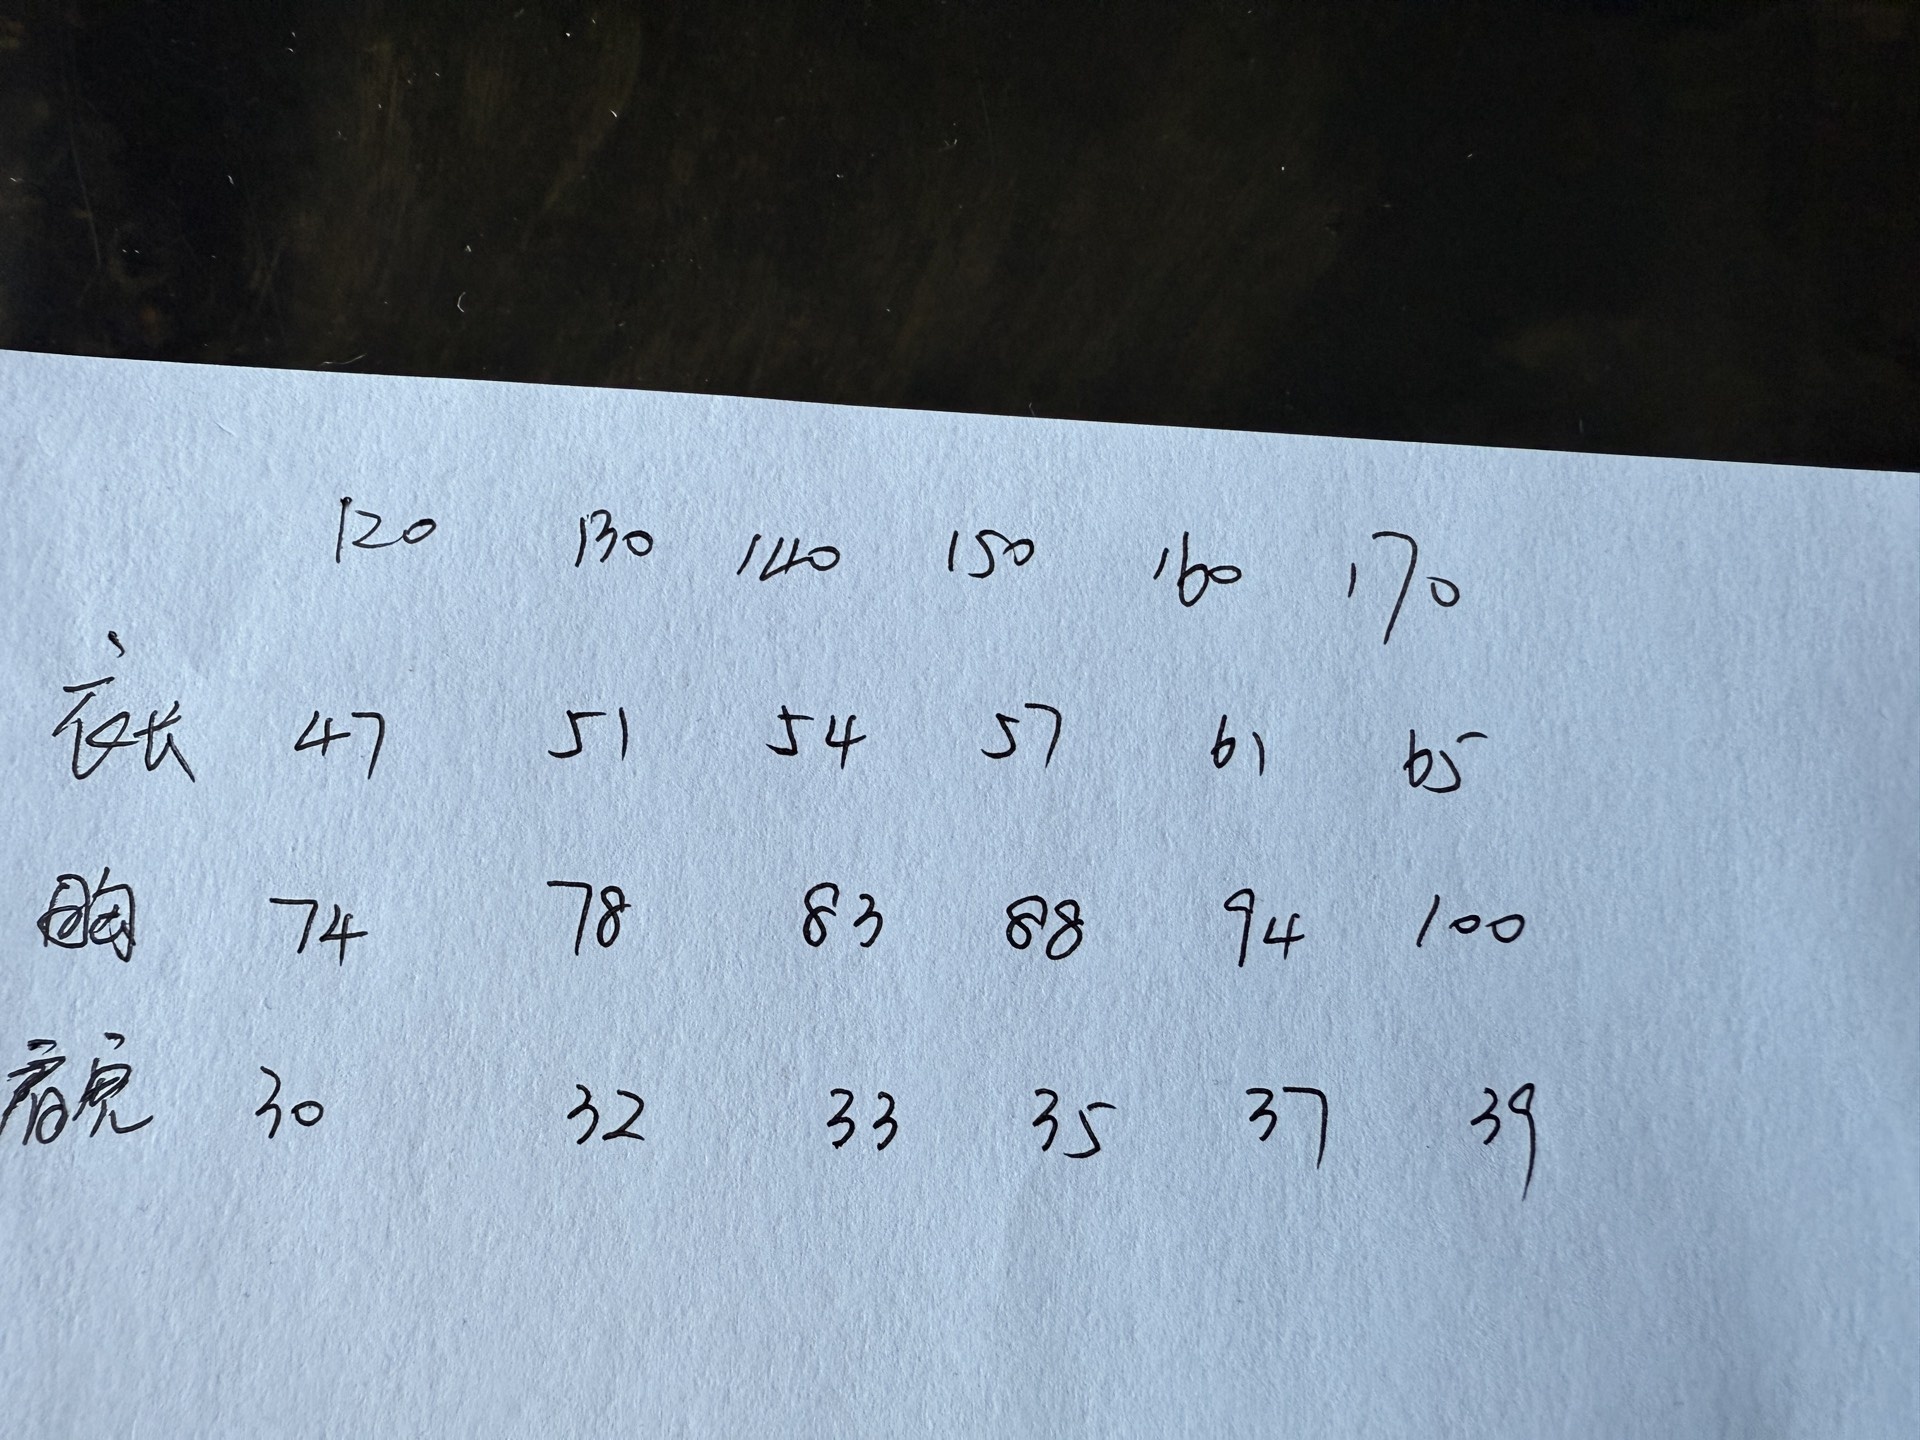 120 130 140 150 160 170
衣长 47 51 54 57 61 65
胸 74 78 83 88 94 100
肩宽 30 32 33 35 37 39